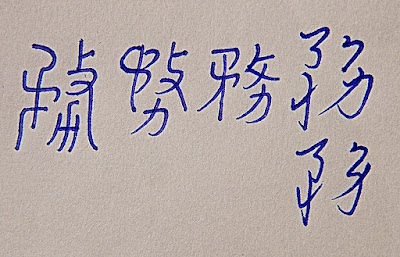 務務務務
務